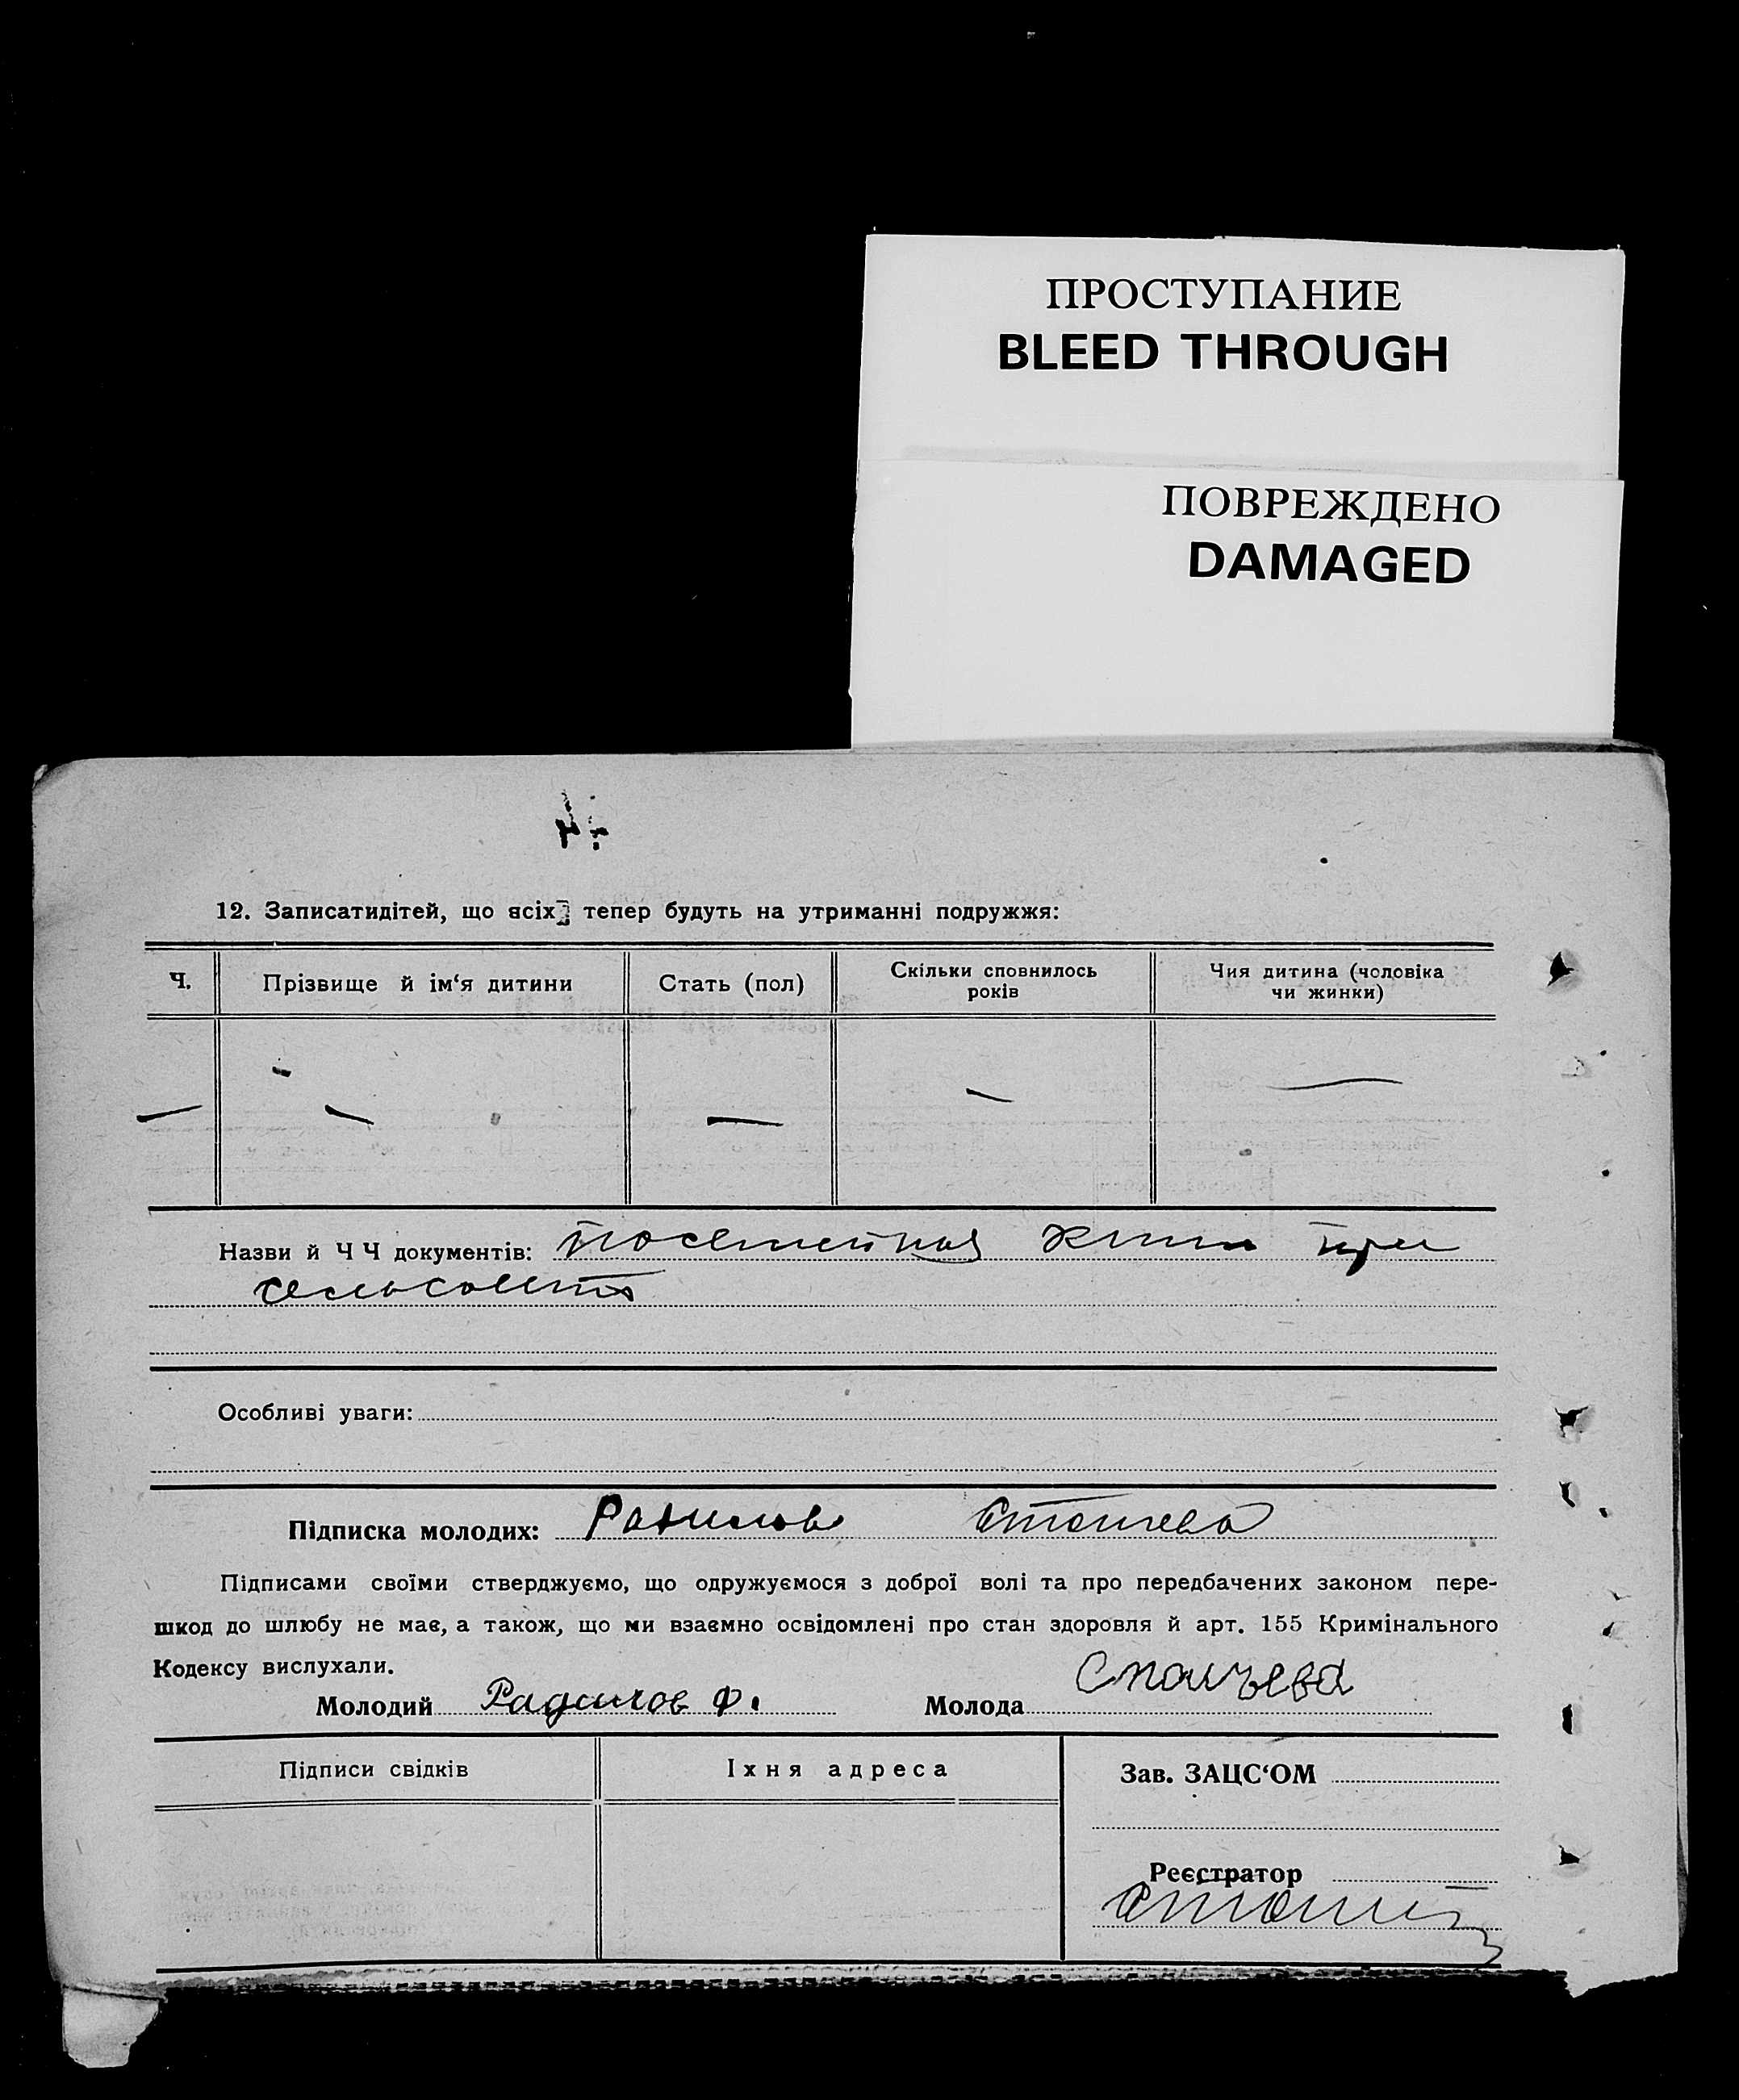 ПРОСТУПАНИЕ
BLEED THROUGH
ПОВРЕЖДЕНО
DAMAGED
12. Записатидітей, що всіх тепер будуть на утриманні подружжя:
Ч. Прізвище й ім‘я дитини Стать (пол) Скільки сповнилось років Чия дитина (чоловіка чи жинки)
— — — — —
Назви й Ч Ч документів: посемейная при
сельсовете
Особливі уваги:
Підписка молодих: Стоичева
Підписами своїми стверджуємо, що одружуємося з доброї волі та про передбачених законом пере-
шкод до шлюбу не має, а також, що ми взаємно освідомлені про стан здоровля й арт. 155 Кримінального
Кодексу вислухали.
Молодий Радилов Ф. Молода Стоичева
Підписи свідків Їхня адреса Зав. ЗАЦС‘ОМ
Реєстратор